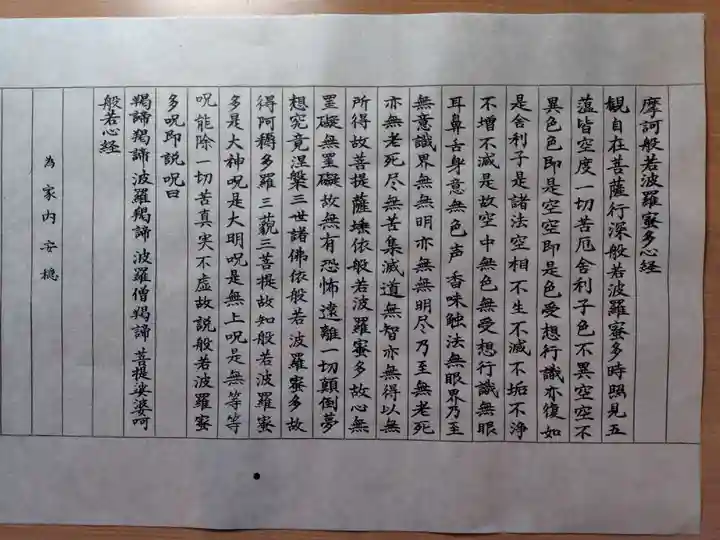 摩訶般若波羅蜜多心経
観自在菩薩行深般若波羅蜜多時照見五
蘊皆空度一切苦厄舎利子色不異空空不
異色色即是空空即是色受想行識亦復如
是舎利子是諸法空相不生不滅不垢不浄
不増不減是故空中無色無受想行識無眼
耳鼻舌身意無色声香味触法無眼界乃至
無意識界無無明亦無無明尽乃至無老死
亦無老死尽無苦集滅道無智亦無得以無
所得故菩提薩埵依般若波羅蜜多故心無
罣礙無罣礙故無有恐怖遠離一切顛倒夢
想究竟涅槃三世諸佛依般若波羅蜜多故
得阿耨多羅三藐三菩提故知般若波羅蜜
多是大神呪是大明呪是無上呪是無等等
呪能除一切苦真実不虚故説般若波羅蜜
多呪即説呪曰
羯諦羯諦波羅羯諦波羅僧羯諦菩提娑婆訶
般若心経
為家内安穏